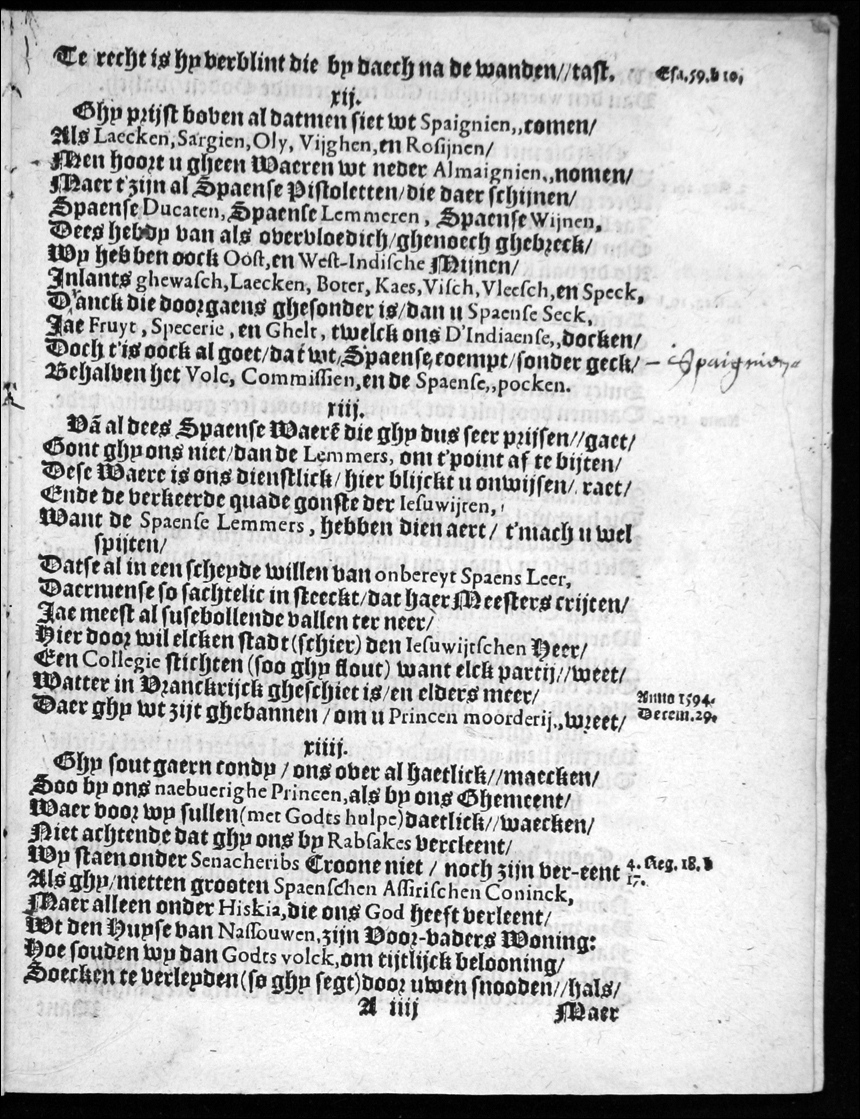 Te recht is hy verblint die by daech na de wanden//tast.
Esa.59.b 10.
xij.
Ghy prijst boven al datmen siet wt Spaignien,,comen/
Als Laecken, Sargien, Oly, Vijghen, en Rosijnen/
Men hoort u gheen Waeren wt neder Almaignien,,nomen/
Maer t'zijn al Spaense Pistoletten/die daer schijnen/
Spaense Ducaten, Spaense Lemmeren, Spaense Wijnen,
Dees hebdy van als overvloedich/ghenoech ghebreck/
Wy hebben oock Oost, en West-Indische Mijnen/
Inlants ghewasch, Laecken, Boter, Kaes, Visch, Vleesch, en Speck,
D'ranck die doorgaens ghesonder is/dan u Spaense Seck,
Jae Fruyt, Specerie, en Ghelt, twelck ons D'Indiaense,,docken/
Doch t'is oock al goet/dat wt, Spaense, coempt/sonder geck/ – Spaignien
Behalven het Volc, Commissien, en de Spaense,,pocken.
xiij.
Vā al dees Spaense Waerē die ghy dus seer prijsen//gaet/
Gont ghy ons niet/dan de Lemmers, om t'point af te bijten/
Dese Waere is ons dienstlick/hier blijckt u onwijsen/,raet/
Ende de verkeerde quade gonste der Iesuwijten,
Want de Spaense Lemmers, hebben dien aert/ t'mach u wel
spijten/
Datse al in een scheyde willen van onbereyt Spaens Leer,
Daermense so sachtelic in steeckt/dat haer Meesters crijten/
Jae meest al susebollende vallen ter neer/
Hier door wil elcken stadt (schier) den Iesuwijtschen Heer/
Een Collegie stichten (soo ghy flout) want elck partij//weet/
Watter in Vranckrijck gheschiet is/en elders meer/
Anno 1594.
Daer ghy wt zijt ghebannen/om u Princen moorderij,,wreet/
Decem.29.
xiiij.
Ghy sout gaern condy/ons over al haetlick//maecken/
Soo by ons naebuerighe Princen, als by ons Ghemeent/
Waer voor wy sullen (met Godts hulpe) daetlick//waecken/
Niet achtende dat ghy ons by Rabsakes vercleent/
Wy staen onder Senacheribs Croone niet/ noch zijn ver-eent
4. Reg. 18. b
17.
Als ghy/metten grooten Spaenschen Assirischen Coninck,
Maer alleen onder Hiskia, die ons God heeft verleent/
Wt den Huyse van Nassouwen, zijn Voor-vaders Woning:
Hoe souden wy dan Godts volck, om tijtlijck belooning/
Soecken te verleyden (so ghy segt) door uwen snooden//hals/
A iiij
Maer